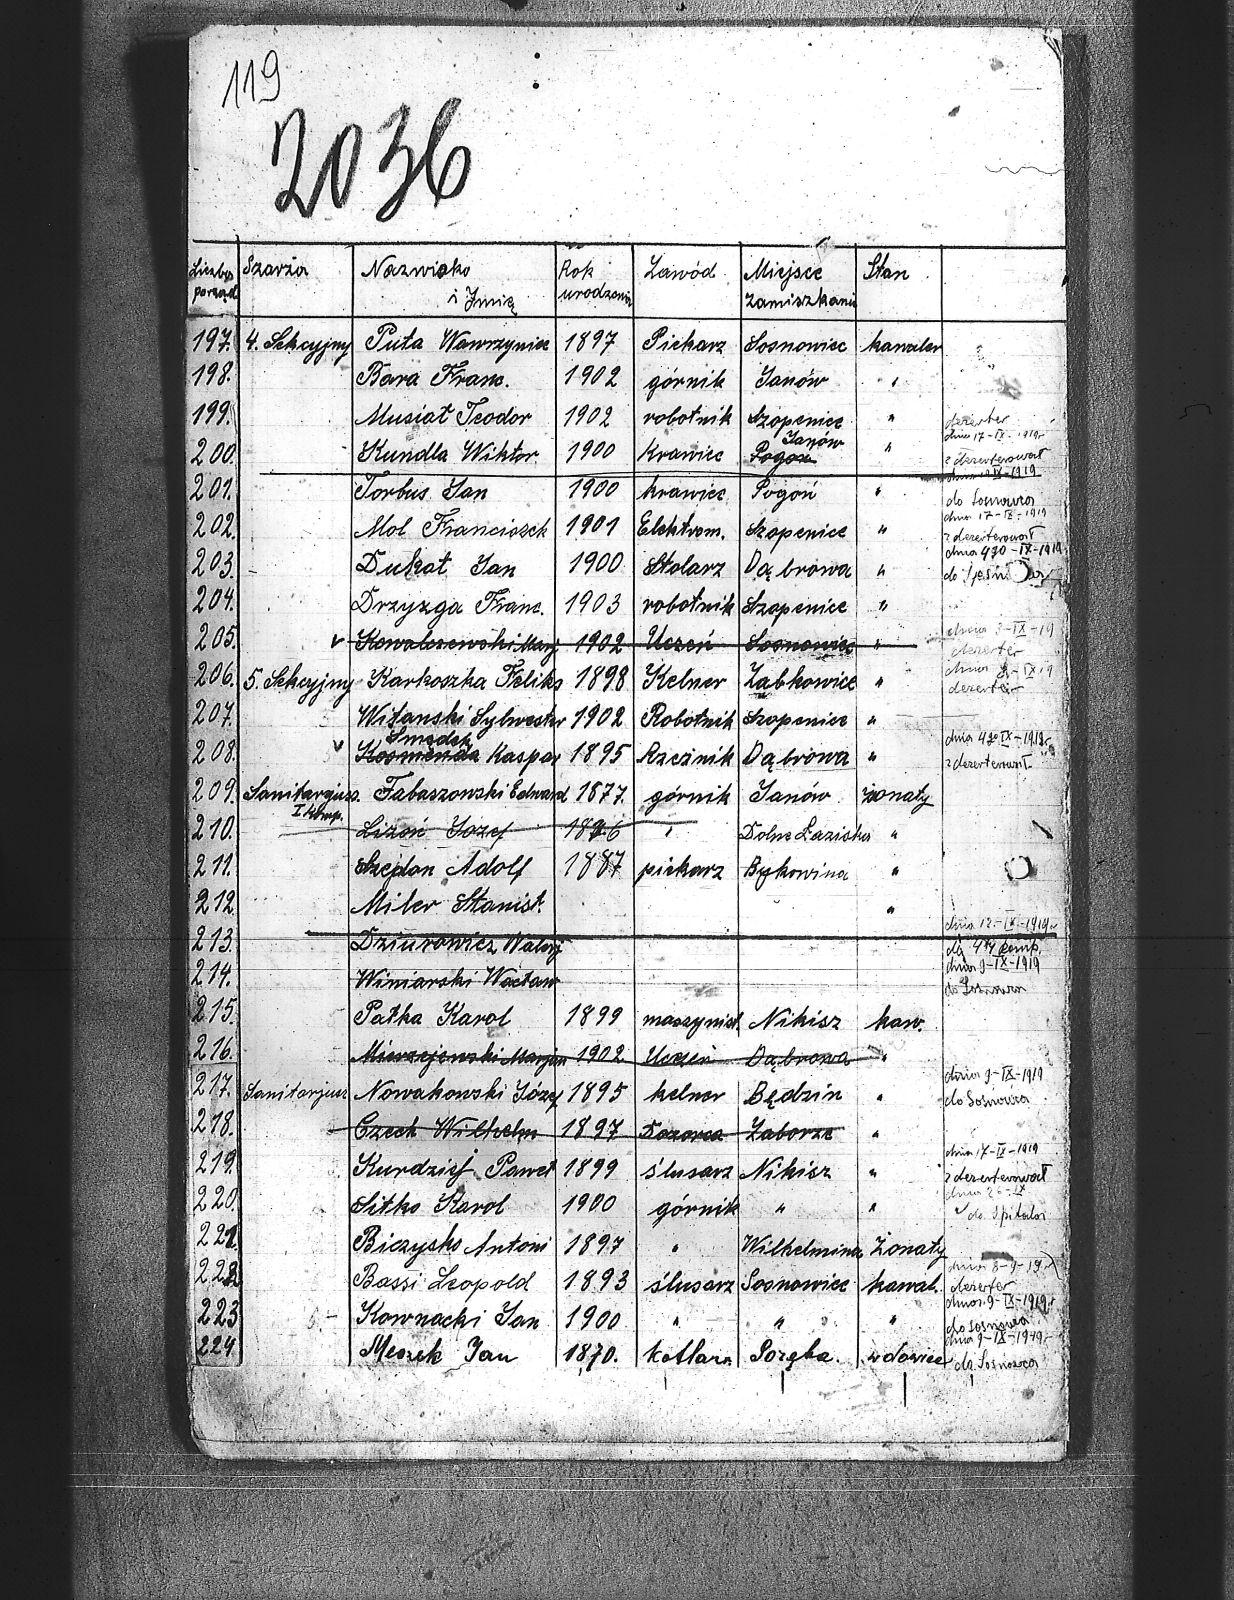 119
2036
Liczba porząd. Szarża Nazwisko i Imię Rok urodzenia Zawód Miejsce zamiszkania Stan
197. 4. Sekcyjny Puta Wawrzyniec 1897 Piekarz Sosnowiec kawaler
198. Bara Franc. 1902 górnik Janów "
199. Musiał Teodor 1902 robotnik Szopenice " dezerter
dnia 17-IX-1919
200. Kundla Wiktor. 1900 Krawiec Janów Pogoń " zdezerterował
201. Torbus Jan 1900 krawiec Pogoń " do Sosnowca
dnia 17-IX-1919
202. Mol Franciszek 1901 Elektrom. Szopenice " zdezerterował
203. Dukat Jan 1900 Stolarz Dąbrowa " do
204. Drzyzga Franc. 1903 robotnik Szopenice "
205. Kowalczewski Marj 1902 Uczeń Sosnowiec " dezerter
206. 5. Sekcyjny Karkoszka Feliks 1898 Kelner Ząbkowice " dezerter
207. Witański Sylwester 1902 Robotnik Szopenice "
208. Kosmenda Kaspar 1895 Rzeźnik Dąbrowa " zdezterował
209. Sanitarjusz. Tabaszowski Edward 1877. górnik Janów żonaty
I komp.
210. Lizoń Józef " Dolne Łaziska "
211. Szejdon Adolf 1887 piekarz Bykowina "
212 Miler Stanisł. "
dnia 12-IX-1919
213. Dziurowicz Walerj
dnia 9-IX-1919
214. Winiarski Wacław do Sosnowca
215. Patka Karol 1899 maszynist. Nikisz kaw.
216. Mierzejewski Marjan 1902 Uczeń Dąbrowa "
dnia 9-IX-1919
217. Sanitarjusz Nowakowski Józef 1895 kelner Będzin " do Sosnowca
218. Czech Wilhelm 1897 Dozorca Zaborze "
dnia 17-IX-1919
219. Kurdziej Paweł 1899 ślusarz Nikisz " zdezerterował
220. Sitko Karol 1900 górnik " " do Spitala
221. Biczysko Antoni 1897 " Wilhelmina Żonaty
dnia 8-9-19
222. Bassi Leopold 1893 ślusarz Sosnowiec kawal. dezerter
dnia 9-IX-1919
223 Kownacki Jan 1900 " " " do Sosnowca
dnia 9-IX-1919
224 Meszek Jan 1870. kotlarz Poręba. wdowiec do Sosnowca